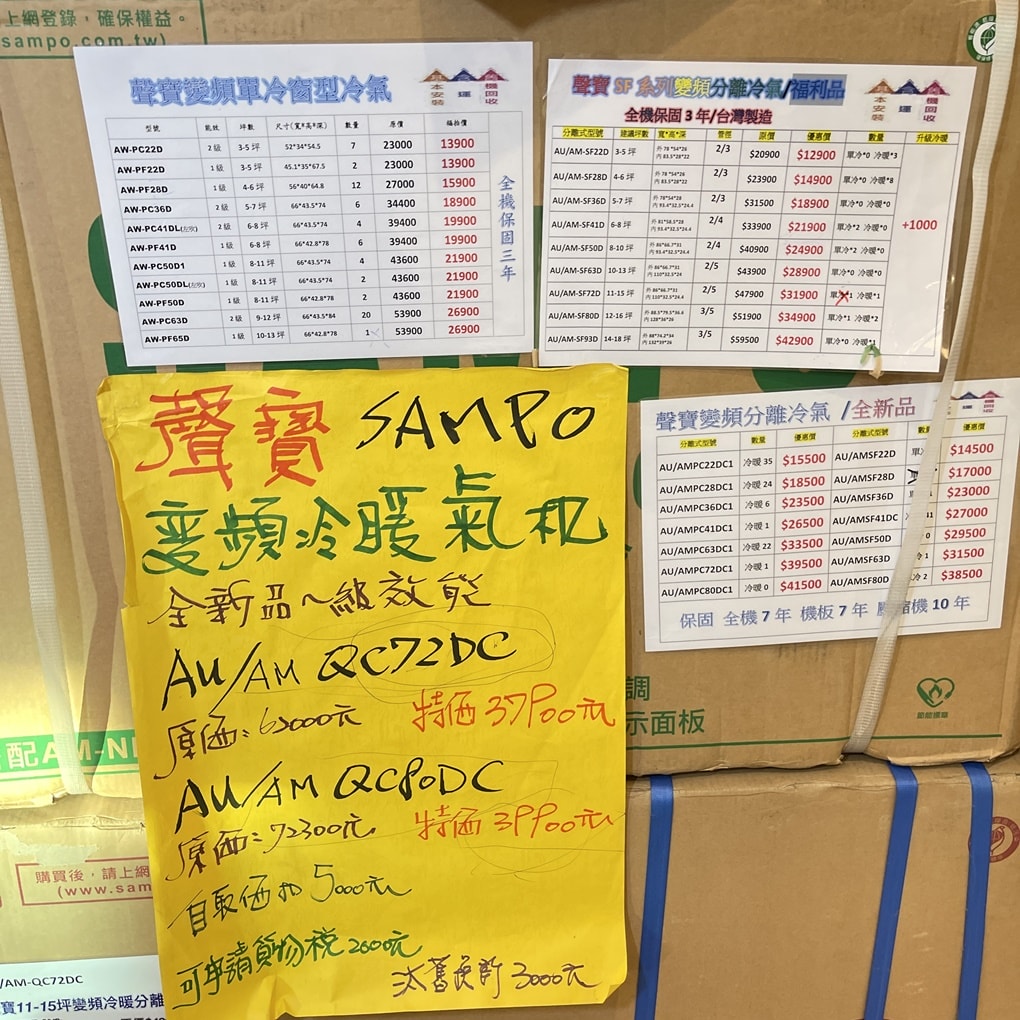 上網登錄，確保權益。
sampo.com.tw)
聲寶變頻單冷窗型冷氣
基本安裝 含運 舊機回收
型號 能效 坪數 尺寸(寬*高*深) 數量 原價 福拍價
AW-PC22D 2級 3-5坪 52*34*54.5 7 23000 13900
AW-PF22D 1級 3-5坪 45.1*35*67.5 2 23000 13900
AW-PF28D 1級 4-6坪 56*40*64.8 12 27000 15900
AW-PC36D 2級 5-7坪 66*43.5*74 6 34400 18900
AW-PC41DL(左吹) 2級 6-8坪 66*43.5*74 4 39400 19900
AW-PF41D 1級 6-8坪 66*42.8*78 6 39400 19900
AW-PC50D1 1級 8-11坪 66*43.5*74 4 43600 21900
AW-PC50DL(左吹) 1級 8-11坪 66*43.5*74 2 43600 21900
AW-PF50D 1級 8-11坪 66*42.8*78 2 43600 21900
AW-PC63D 2級 9-12坪 66*43.5*84 20 53900 26900
AW-PF65D 1級 10-13坪 66*42.8*78 1 53900 26900
全機保固三年
聲寶 SF 系列變頻分離冷氣/福利品
基本安裝 含運 舊機回收
全機保固 3 年/台灣製造
分離式型號 建議坪數 寬*高*深 管徑 原價 優惠價 數量 升級冷暖
AU/AM-SF22D 3-5坪 外 78*54*28 內 83.5*28*22 2/3 $20900 $12900 單冷*0 冷暖*3
AU/AM-SF28D 4-6坪 外 78*54*28 內 83.5*28*22 2/3 $23900 $14900 單冷*0 冷暖*8
AU/AM-SF36D 5-7坪 外 78*54*28 內 93.4*32.5*24.4 2/3 $31500 $18900 單冷*0 冷暖*0
AU/AM-SF41D 6-8坪 外 81*58.5*28 內 93.4*32.5*24.4 2/4 $33900 $21900 單冷*2 冷暖*0
AU/AM-SF50D 8-10坪 外 86*66.7*31 內 93.4*32.5*24.4 2/4 $40900 $24900 單冷*2 冷暖*0
AU/AM-SF63D 10-13坪 外 86*66.7*31 內 110*32.5*24 2/5 $43900 $28900 單冷*0 冷暖*0
AU/AM-SF72D 11-15坪 外 86*66.7*31 內 110*32.5*24.4 2/5 $47900 $31900 單冷*1 冷暖*1
AU/AM-SF80D 12-16坪 外 88.5*79.5*36.6 內 128*36*26 3/5 $51900 $34900 單冷*1 冷暖*2
AU/AM-SF93D 14-18坪 外 88*74.2*34 內 132*39*26 3/5 $59500 $42900 單冷*0 冷暖*1
+1000
聲寶變頻分離冷氣 /全新品
分離式型號 數量 優惠價 分離式型號 數量 優惠價
AU/AMPC22DC1 冷暖 35 $15500 AU/AMSF22D 單 $14500
AU/AMPC28DC1 冷暖 24 $18500 AU/AMSF28D $17000
AU/AMPC36DC1 冷暖 6 $23500 AU/AMSF36D $23000
AU/AMPC41DC1 冷暖 1 $26500 AU/AMSF41DC $27000
AU/AMPC63DC1 冷暖 22 $33500 AU/AMSF50D $29500
AU/AMPC72DC1 冷暖 1 $39500 AU/AMSF63D $31500
AU/AMPC80DC1 冷暖 0 $41500 AU/AMSF80D 冷 2 $38500
保固 全機 7 年 機板 7 年 壓縮機 10 年
聲寶 SAMPO
变頻冷暖氣机
全新品一級效能
AU/AM QC72DC
原価：63000元 特価 37900元
AU/AM QC80DC
原価：72300元 特価 39900元
自取価扣 5000元
可申請貨物稅 2000元
汰舊換新 3000元
調
示面板
節能標章
配AM-N
購買後，請上網
(www.sam
/AM-QC72DC
寶11-15坪變頻冷暖分離